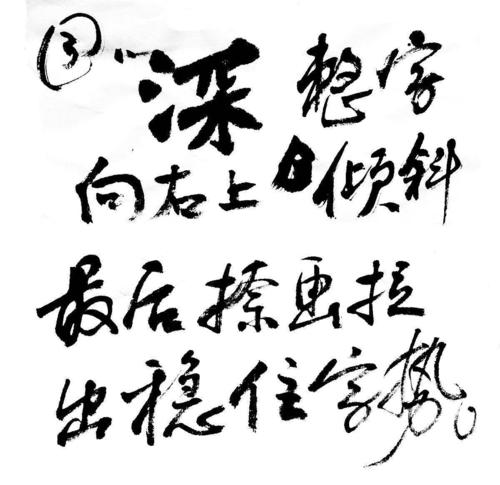 深 整字
向右上倾斜
最后捺画拉
出稳住字势。